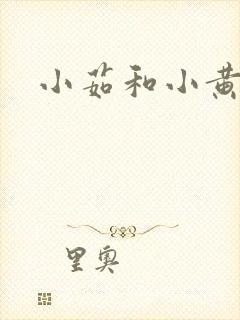 小茹和小黄
里奥